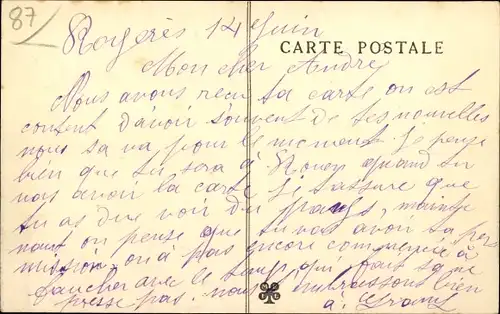 87
Royères 14 Juin
CARTE POSTALE
Mon cher André
Nous avons reçu ta carte on est
content d'avoir souvent de tes nouvelles
nous sa va pour le moment. Je pense
bien que tu sera à Rouen quand tu
vas avoir la carte Je t'assure que
tu as du voir du pays, mainte
nant on pense que tu vas avoir ta per
mission. on a pas encore commencé à
faucher avec le temp qui fait sa ne
presse pas. nous t'embrassons bien
à